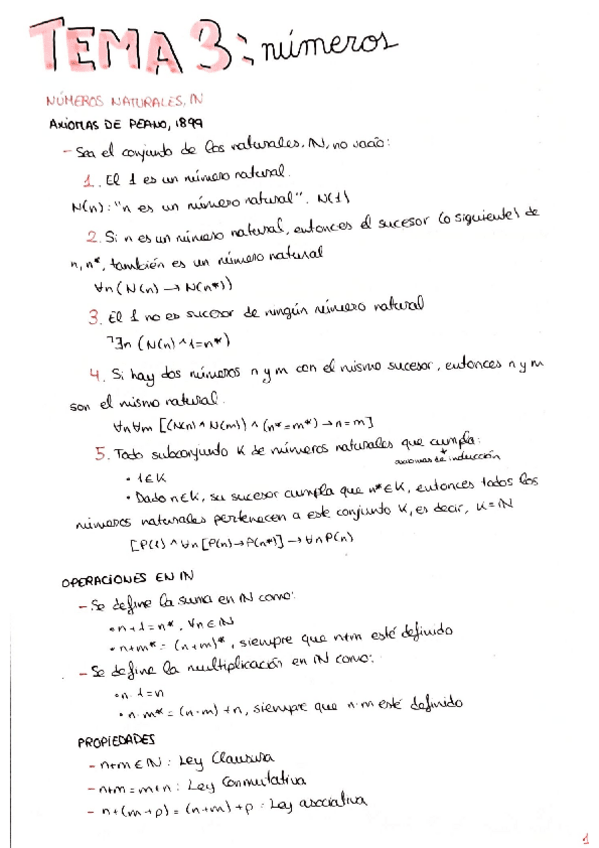 TEMA 3: números
NÚMEROS NATURALES, ℕ
AXIOMAS DE PEANO, 1899
- Sea el conjunto de los naturales, ℕ, no vacío:
1. El 1 es un número natural.
N(n): "n es un número natural". N(1)
2. Si n es un número natural, entonces el sucesor (o siguiente) de
n, n*, también es un número natural
∀n (N(n) → N(n*))
3. El 1 no es sucesor de ningún número natural
¬∃n (N(n) ∧ 1=n*)
4. Si hay dos números n y m con el mismo sucesor, entonces n y m
son el mismo natural.
∀n∀m [(N(n) ∧ N(m)) ∧ (n*=m*) → n=m]
5. Todo subconjunto K de números naturales que cumpla:
axiomas de inducción
• 1∈K
• Dado n∈K, su sucesor cumpla que n*∈K, entonces todos los
números naturales pertenecen a este conjunto K, es decir, K=ℕ
[P(1) ∧ ∀n [P(n) → P(n*)] → ∀n P(n)
OPERACIONES EN ℕ
- Se define la suma en ℕ como:
• n+1=n*, ∀n∈ℕ
• n+m* = (n+m)*, siempre que n+m esté definido
- Se define la multiplicación en ℕ como:
• n·1=n
• n·m* = (n·m)+n, siempre que n·m esté definido
PROPIEDADES
- n+m∈ℕ: Ley Clausura
- n+m = m+n: Ley Conmutativa
- n+(m+p) = (n+m)+p: Ley asociativa
1